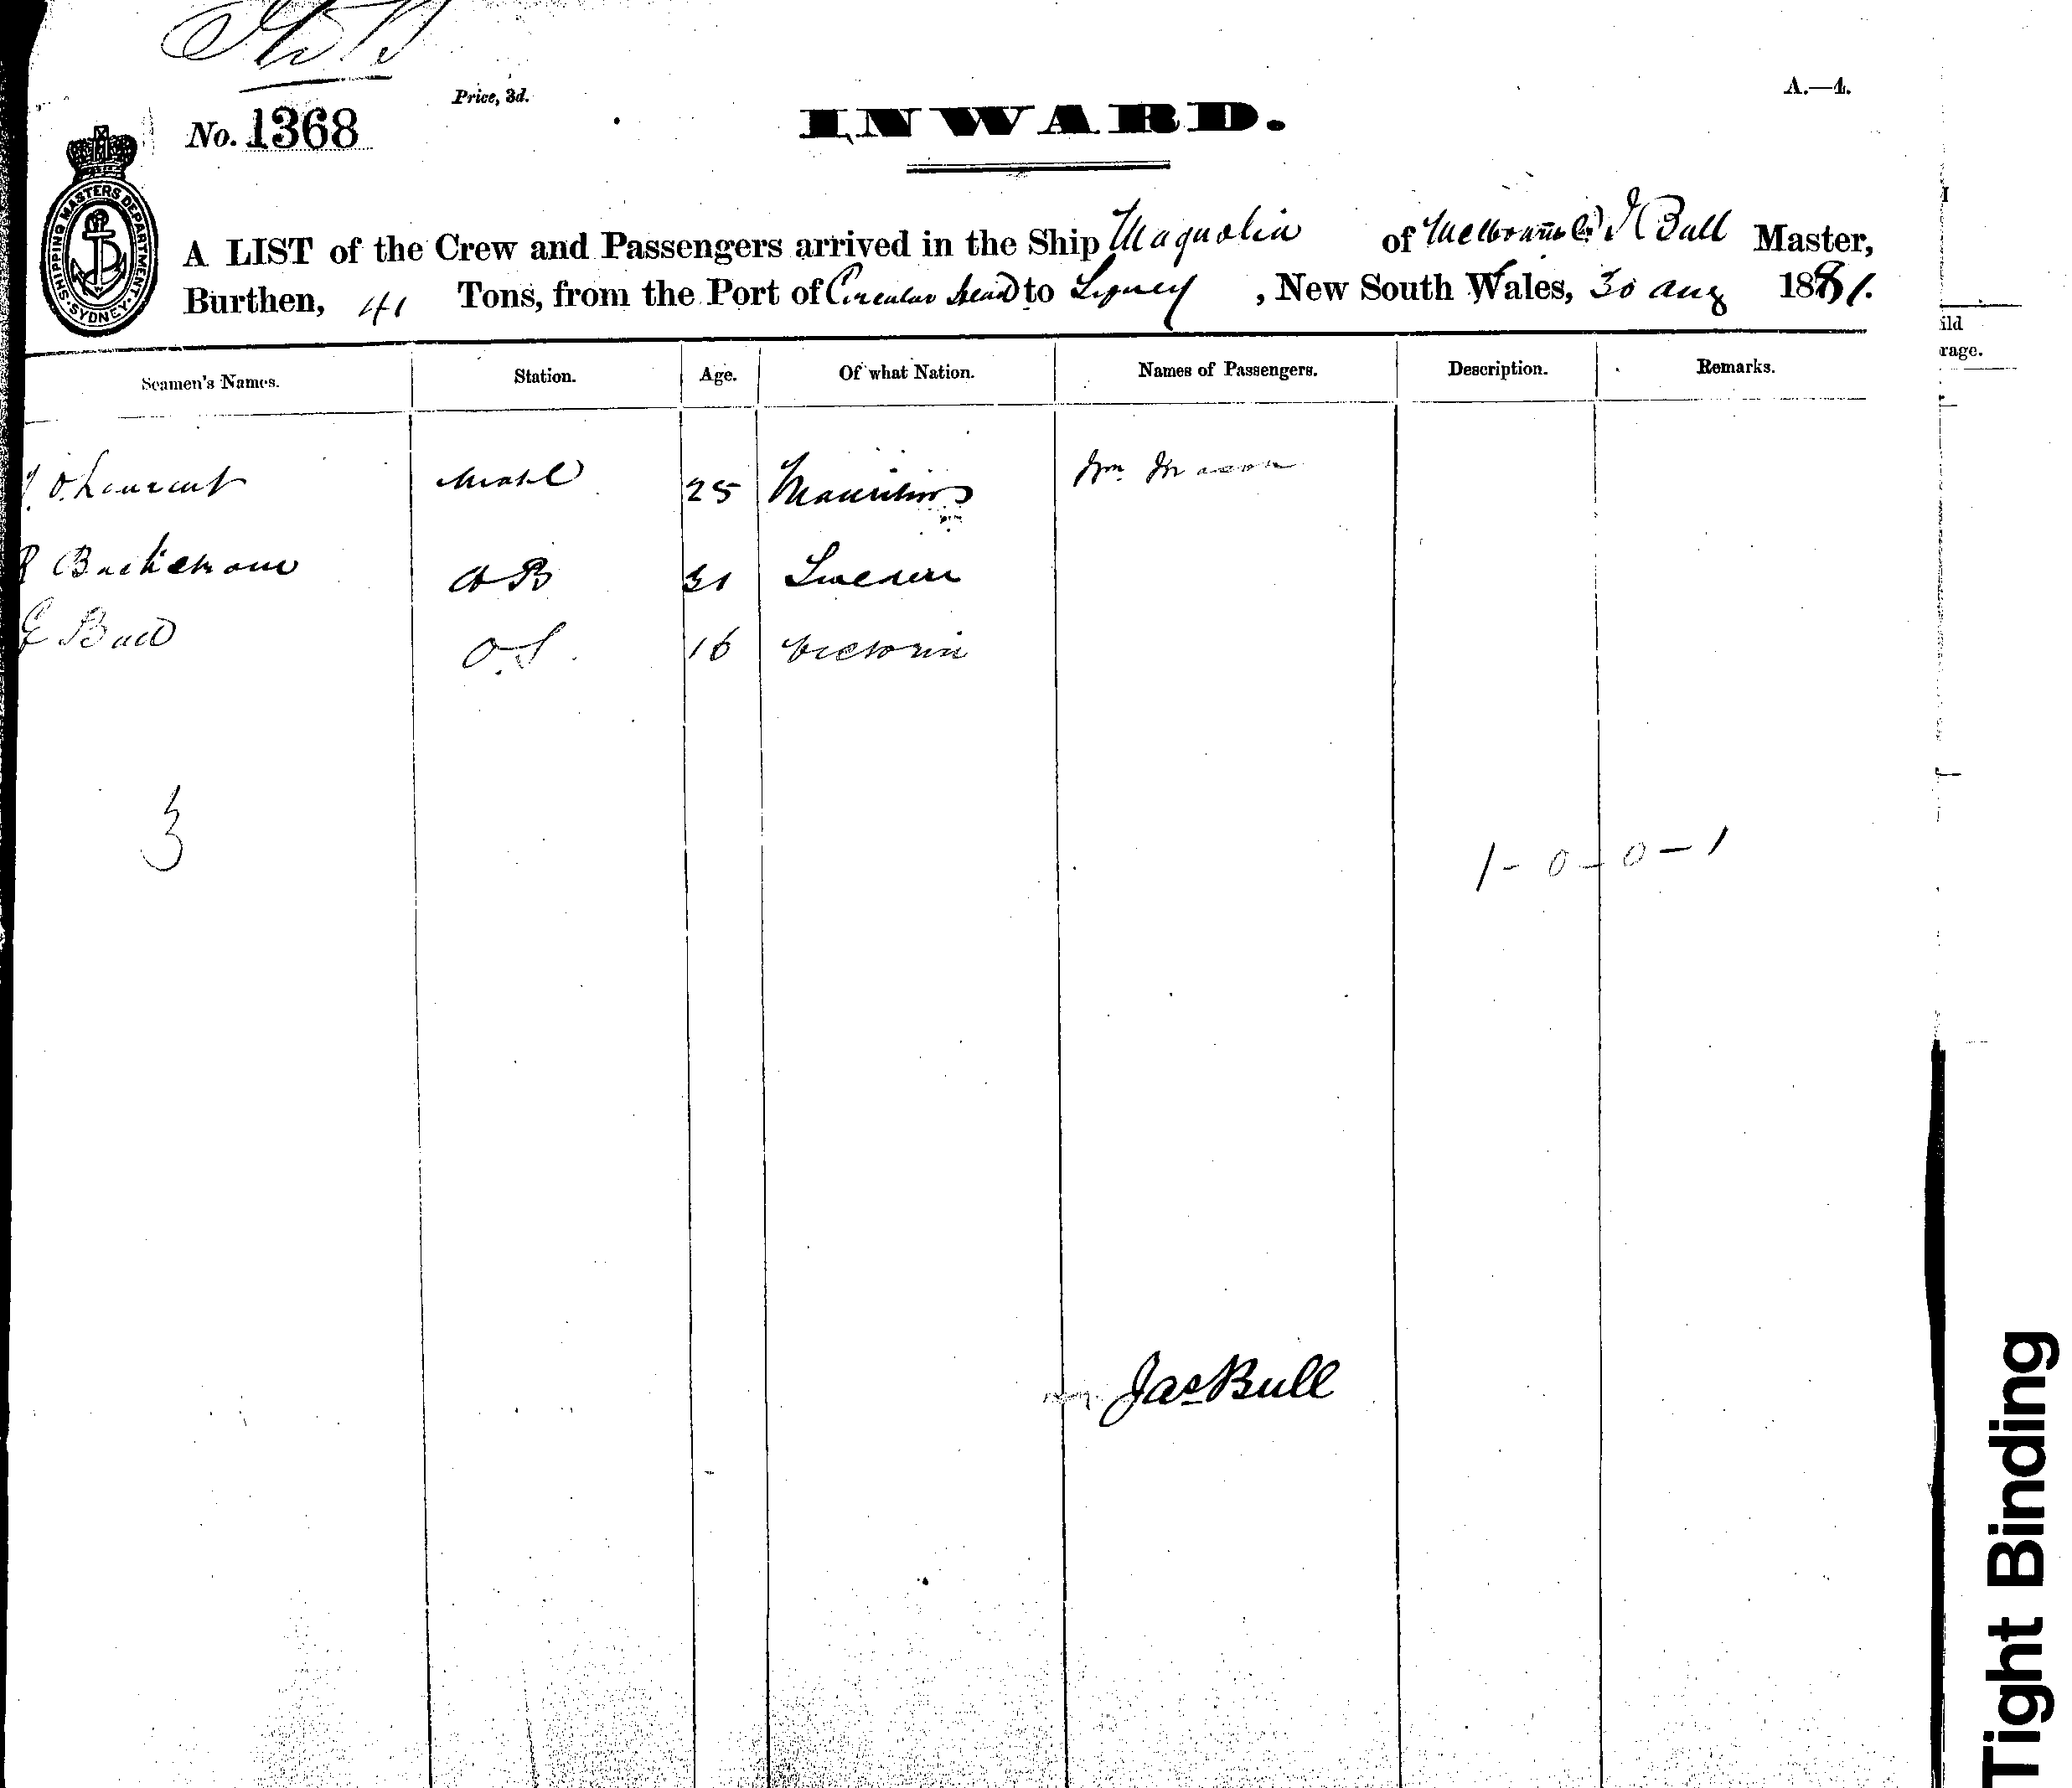 Price, 3d.
A.—4.
No. 1368
INWARD.
SHIPPING MASTERS DEPARTMENT. SYDNEY.
A LIST of the Crew and Passengers arrived in the Ship Magnolia of Melbourne J Bull Master,
Burthen, 41 Tons, from the Port of Circular Head to Sydney, New South Wales, 30 Aug 1881.
Seamen's Names. Station. Age. Of what Nation. Names of Passengers. Description. Remarks.
Laurent Mate 25 Mauritius Wm. Mason
A B 31 Sweden
E Bull O.S. 16 Victoria
3
1 - 0 - 0 - 1
Jas Bull
ild
rage.
Tight Binding